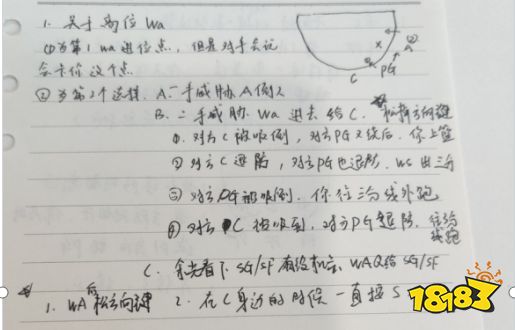 1. 关于高位 Wa
①为第1 wa 进位点, 但是对手会说
会卡你这个点
②为第2个选择. A.一手威胁 A 倒人
B. 二手威胁. Wa 进去给 C. 松掉方向键
①. 对方 C 被吸倒, 对方 PG 又绕后. 你上篮
② 对方 C 退防, 对方 PG 也退防. WS 出三分
③ 对方 PG 被吸倒. 你往三分线外跑
④ 对方 C 被吸到, 对方 PG 退防, 往三分线跑
C. 余光看下 SG/SF 有没机会, WAQ给 SG/SF
1. WA 后松方向键 2. 在 C 身边的时候一直按 S
C PG A ②
18183